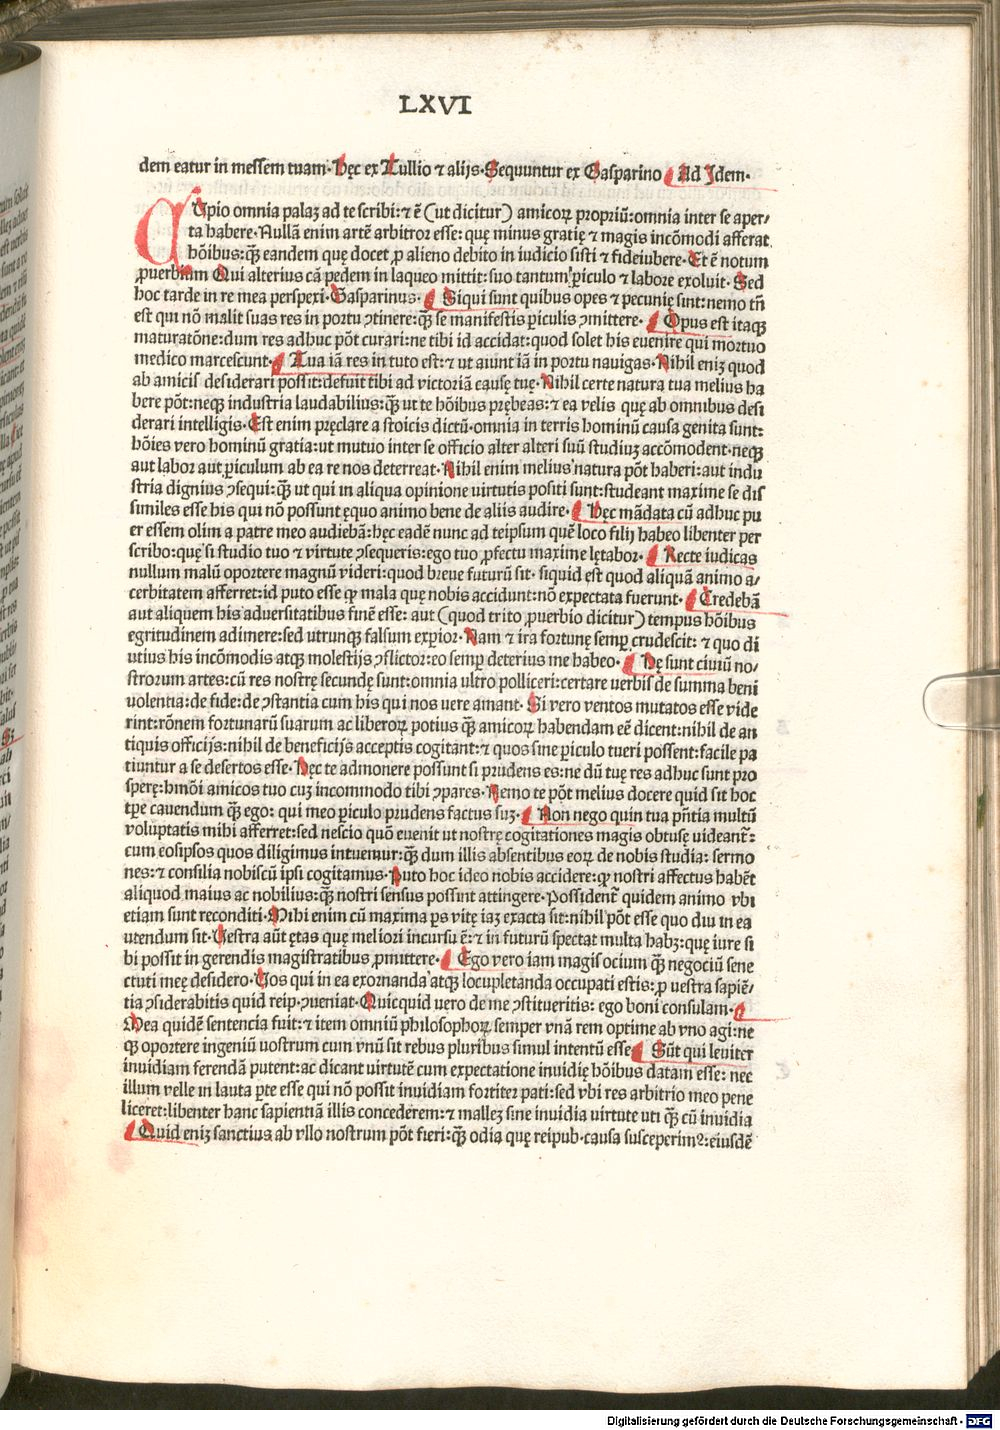 LXVI
dem eatur in messem tuam. Hęc ex Tullio ⁊ alijs. Sequuntur ex Gasparino Ad Jdem.
CUpio omnia palaꝫ ad te scribi: ⁊ ē (ut dicitur) amicoꝝ propriū: omnia inter se aper/
ta habere. Nullā enim artē arbitror esse: quę minus gratię ⁊ magis incōmodi afferat
hōibus: ꝙ̄ eandem quę docet ꝓ alieno debito in iudicio sisti ⁊ fideiubere. Et ē notum
ꝓuerbium Qui alterius cā pedem in laqueo mittit: suo tantum ꝑiculo ⁊ labore exoluit. Sed
hoc tarde in re mea perspexi. Gasparinus. Siqui sunt quibus opes ⁊ pecunię sint: nemo tn̄
est qui nō malit suas res in portu ꝯtinere: ꝙ̄ se manifestis ꝑiculis ꝯmittere. Opus est itaqꝫ
maturatōne: dum res adhuc pōt curari: ne tibi id accidat: quod solet his euenire qui mortuo
medico marcescunt. Tua iā res in tuto est: ⁊ ut aiunt iā in portu nauigas. Nihil eniꝫ quod
ab amicis desiderari possit: defuit tibi ad victoriā causę tuę. Nihil certe natura tua melius ha
bere pōt: neqꝫ industria laudabilius: ꝙ̄ ut te hōibus prębeas: ⁊ ea velis quę ab omnibus desi
derari intelligis. Est enim pręclare a stoicis dictū. omnia in terris hominū causa genita sunt:
hōies vero hominū gratia: ut mutuo inter se officio alter alteri suū studiuꝫ accōmodent. neqꝫ
aut labor aut ꝑiculum ab ea re nos deterreat. Nihil enim melius natura pōt haberi: aut indu
stria dignius ꝯsequi: ꝙ̄ ut qui in aliqua opinione virtutis positi sunt: studeant maxime se dis
similes esse his qui nō possunt ęquo animo bene de aliis audire. Hęc mādata cū adhuc pu
er essem olim a patre meo audiebā: hęc eadē nunc ad teipsum quē loco filij habeo libenter per
scribo: quę si studio tuo ⁊ virtute ꝯsequeris: ego tuo ꝓfectu maxime lętabor. Recte iudicas
nullum malū oportere magnū videri: quod breue futurū sit. siquid est quod aliquā animo a/
cerbitatem afferret: id puto esse ꝙ mala quę nobis accidunt: nō expectata fuerunt. Credebā
aut aliquem his aduersitatibus finē esse: aut (quod trito ꝓuerbio dicitur) tempus hōibus
egritudinem adimere: sed utrunqꝫ falsum exꝑior. Nam ⁊ ira fortunę semꝑ crudescit: ⁊ quo di
utius his incōmodis atqꝫ molestijs ꝯflictor: eo semꝑ deterius me habeo. Hę sunt ciuiū no/
strorum artes: cū res nostrę secundę sunt: omnia ultro polliceri: certare verbis de summa beni
uolentia: de fide: de ꝯstantia cum his qui nos vere amant. Si vero ventos mutatos esse vide
rint: rōnem fortunarū suarum ac liberoꝝ potius ꝙ̄ amicoꝝ habendam eē dicent: nihil de an
tiquis officijs: nihil de beneficijs acceptis cogitant: ⁊ quos sine ꝑiculo tueri possent: facile pa
tiuntur a se desertos esse. Hęc te admonere possunt si prudens es: ne dū tuę res adhuc sunt pro
sperę: hmōi amicos tuo cuꝫ incommodo tibi ꝯpares. Nemo te pōt melius docere quid sit hoc
tꝑe cauendum ꝙ̄ ego: qui meo ꝑiculo prudens factus suꝫ. Non nego quin tua pn̄tia multū
voluptatis mihi afferret: sed nescio quō euenit ut nostrę cogitationes magis obtusę videant̄:
cum eosipsos quos diligimus intuemur: ꝙ̄ dum illis absentibus eoꝝ de nobis studia: sermo
nes: ⁊ consilia nobiscū ipsi cogitamus. Puto hoc ideo nobis accidere: ꝙ nostri affectus habēt
aliquod maius ac nobilius: ꝙ̄ nostri sensus possint attingere. Possident̄ quidem animo vbi
etiam sunt reconditi. Mihi enim cū maxima ꝑs vitę iaꝫ exacta sit: nihil pōt esse quo diu in ea
utendum sit. Uestra aūt ętas quę meliori incursu ē: ⁊ in futurū spectat multa habꝫ: quę iure si
bi possit in gerendis magistratibus ꝓmittere. Ego vero iam magis ocium ꝙ̄ negociū sene
ctuti meę desidero. Uos qui in ea exornanda atqꝫ locupletanda occupati estis: ꝓ uestra sapiē/
tia ꝯsiderabitis quid reip. ꝯueniat. Quicquid vero de me ꝯstitueritis: ego boni consulam.
Mea quidē sentencia fuit: ⁊ item omniū philosophoꝝ semper vnā rem optime ab vno agi: ne
qꝫ oportere ingeniū uostrum cum vnū sit rebus pluribus simul intentū esse Sūt qui leuiter
inuidiam ferendā putent: ac dicant virtutē cum expectatione inuidię hōibus datam esse: nec
illum velle in lauta ꝑte esse qui nō possit inuidiam fortiter pati: sed vbi res arbitrio meo pene
liceret: libenter hanc sapientiā illis concederem: ⁊ malleꝫ sine inuidia virtute uti ꝙ̄ cū inuidia
Quid eniꝫ sanctius ab vllo nostrum pōt fieri: ꝙ̄ odia quę reipub. causa susceperimꝰ: eiusdē
Digitalisierung gefördert durch die Deutsche Forschungsgemeinschaft - DFG